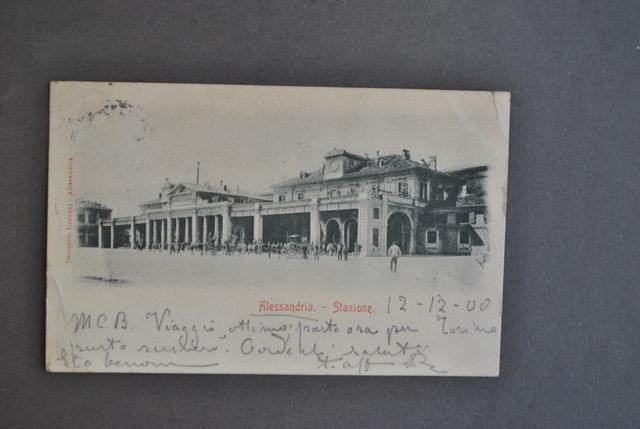 Domenico Lanzani - Alessandria.
Alessandria. - Stazione.
12-12-00
M.C.B. Viaggio ottimo; parto ora per Torino
Cordiali saluti
Sto benone